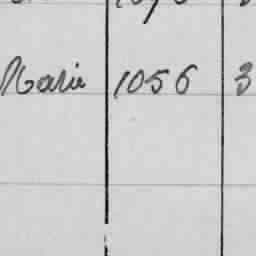 Marie 1056 3